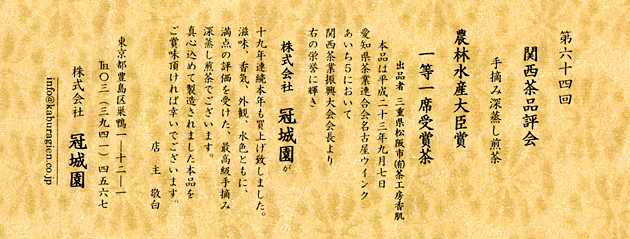 第六十四回
関西茶品評会
手摘み深蒸し煎茶
農林水産大臣賞
一等一席受賞茶
出品者 三重県松阪市㈲茶工房香肌
本品は平成二十三年九月七日
愛知県茶業連合会名古屋ウインク
あいち5において
関西茶業振興大会会長より
右の栄誉に輝き
株式会社 冠城園が
十九年連続本年も買上げ致しました。
滋味、香気、外観、水色ともに、
満点の評価を受けた、最高級手摘み
深蒸し煎茶でございます。
真心込めて製造されました本品を
ご賞味頂ければ幸いでございます。
店主 敬白
東京都豊島区巣鴨一―十二―一
℡〇三(三九四一)四五六七
株式会社 冠城園
info@kaburagien.co.jp